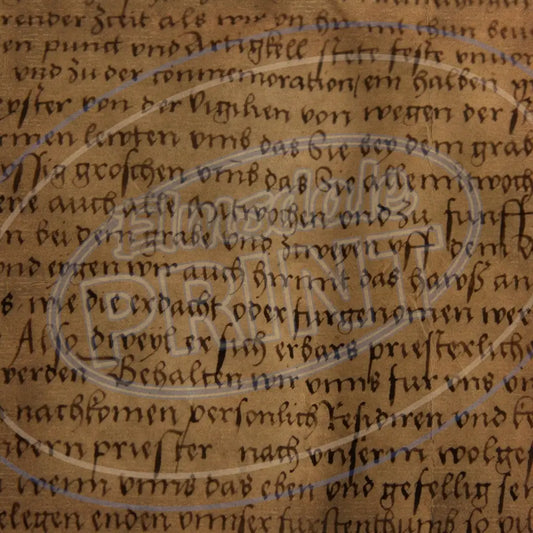 render Zceit als wir vn hirmit thun
en punct vnd Artigkell stete feste vnuor
vnd zu der commemoration ein halben
yster von der Vigilien von wegen der
rmen lewten vnns das Sie bey dem grab
yssig groschen vnns das Sie alle mitwoch
ene auch alle Mitwochen vnd zu funff
n bei dem grabe vnd zweyen vff dem
vnd ergen wir auch hirmit das hawß an
s wie die erdacht oder furgenomen wer
Also dweyl er sich erbars priesterliche
werden Behalten wir vnns fur vns vn
nachkomen personlich Residiren vnd ke
ndern priester nach vnserm wolgef
wenn vnns das eben vnd gefellig sei
elegen enden vnnser furstenthumb so vil
Elmsdale
PRINT